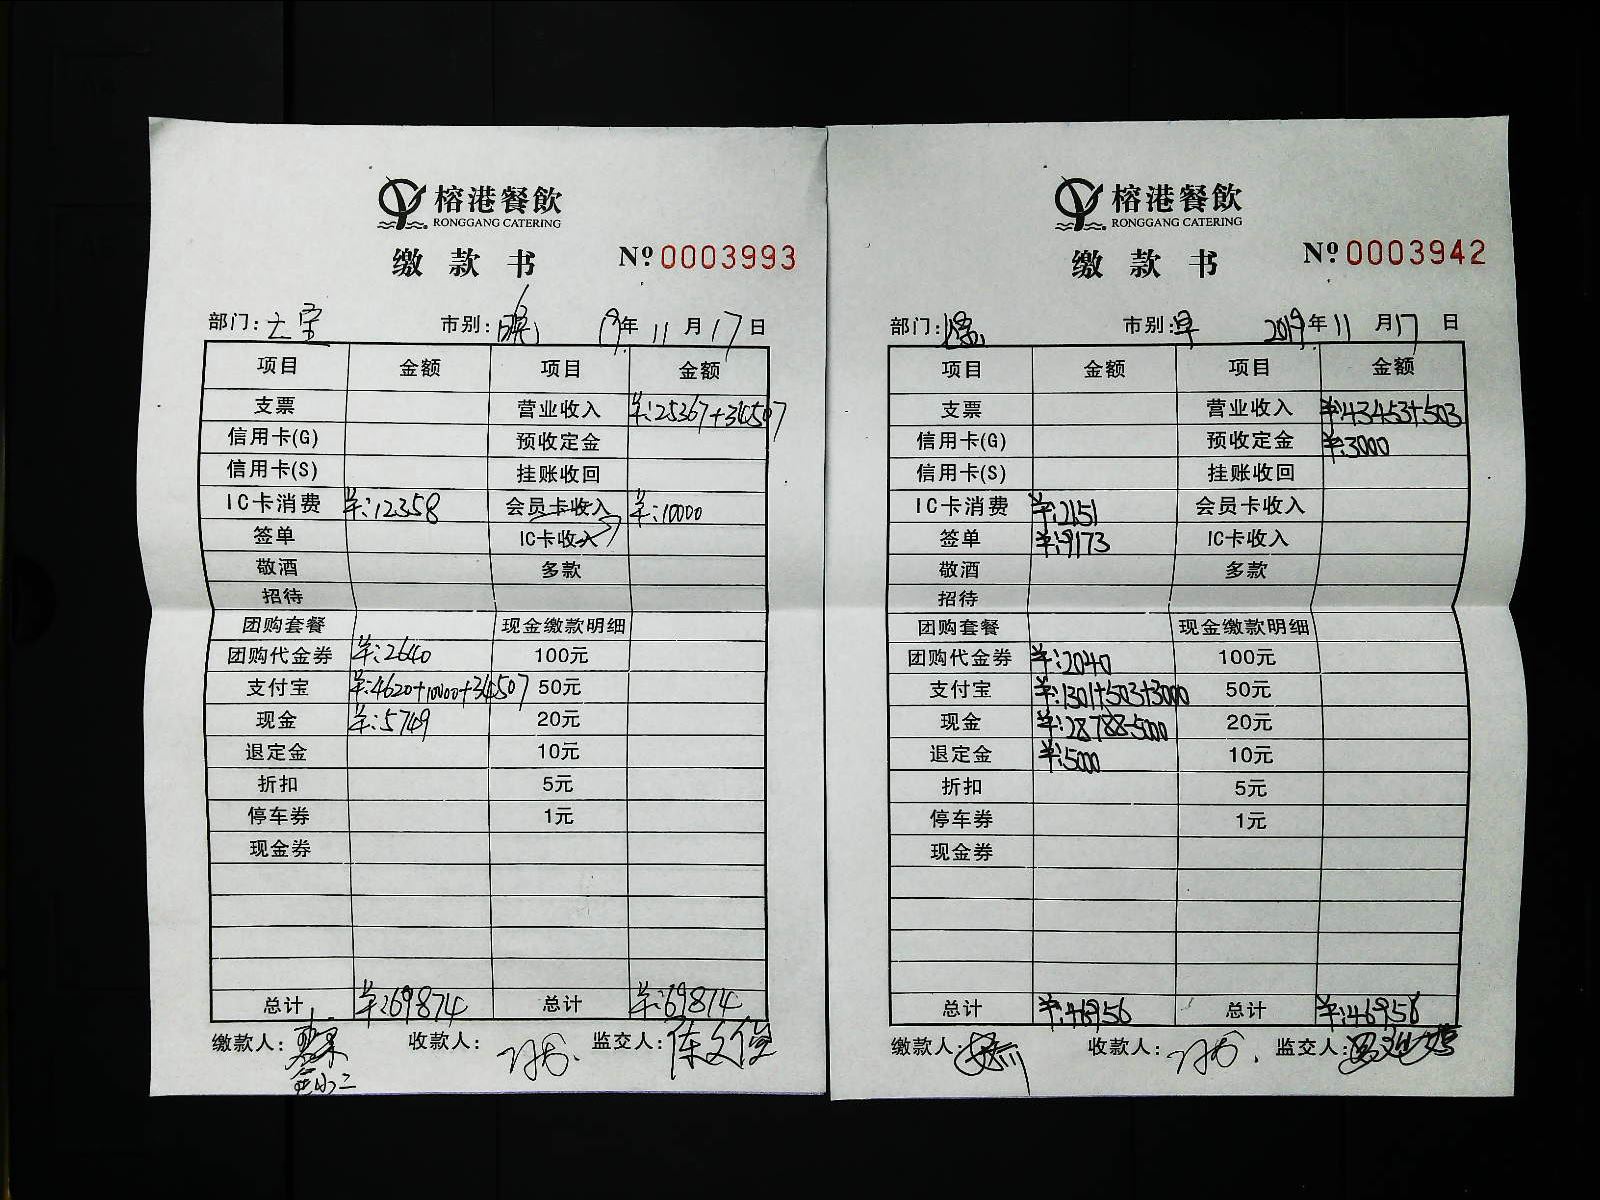 榕港餐飲
RONGGANG CATERING
缴款书
Nº 0003993
部门: 市别: 晚 19年 11月 17日
项目 金额 项目 金额
支票 营业收入 ¥:25367+34507
信用卡(G) 预收定金
信用卡(S) 挂账收回
IC卡消费 ¥:12358 会员卡收入 ¥:10000
签单 IC卡收入
敬酒 多款
招待
团购套餐 现金缴款明细
团购代金券 ¥:2640 100元
支付宝 ¥:4620+10000+34507 50元
现金 ¥:5749 20元
退定金 10元
折扣 5元
停车券 1元
现金券
总计 ¥:69874 总计 ¥:69874
缴款人: 收款人: 监交人:陈文俊
榕港餐飲
RONGGANG CATERING
缴款书
Nº 0003942
部门: 市别:早 2019年 11月 17日
项目 金额 项目 金额
支票 营业收入 ¥:43453+503
信用卡(G) 预收定金 ¥:3000
信用卡(S) 挂账收回
IC卡消费 ¥:2151 会员卡收入
签单 ¥:9173 IC卡收入
敬酒 多款
招待
团购套餐 现金缴款明细
团购代金券 ¥:2040 100元
支付宝 ¥:1301+503+3000 50元
现金 ¥:28788-5000 20元
退定金 ¥:5000 10元
折扣 5元
停车券 1元
现金券
总计 ¥:46956 总计 ¥:46956
缴款人: 收款人: 监交人: